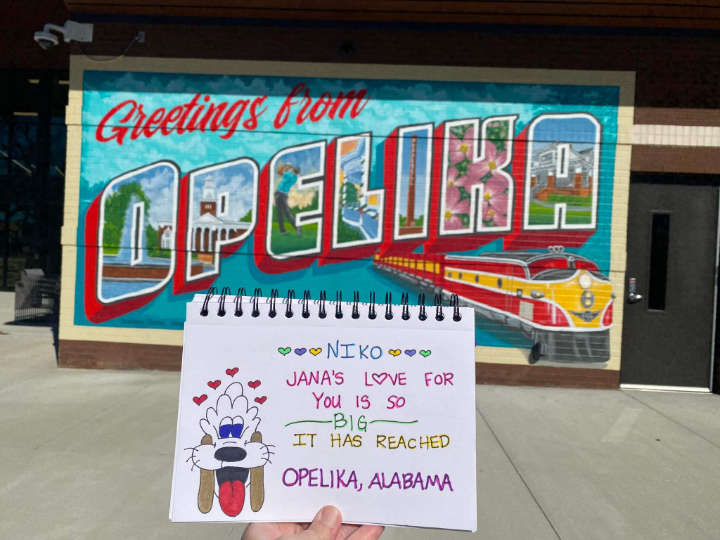 Greetings from
OPELIKA
NIKO
JANA'S LOVE FOR
YOU IS SO
BIG
IT HAS REACHED
OPELIKA, ALABAMA